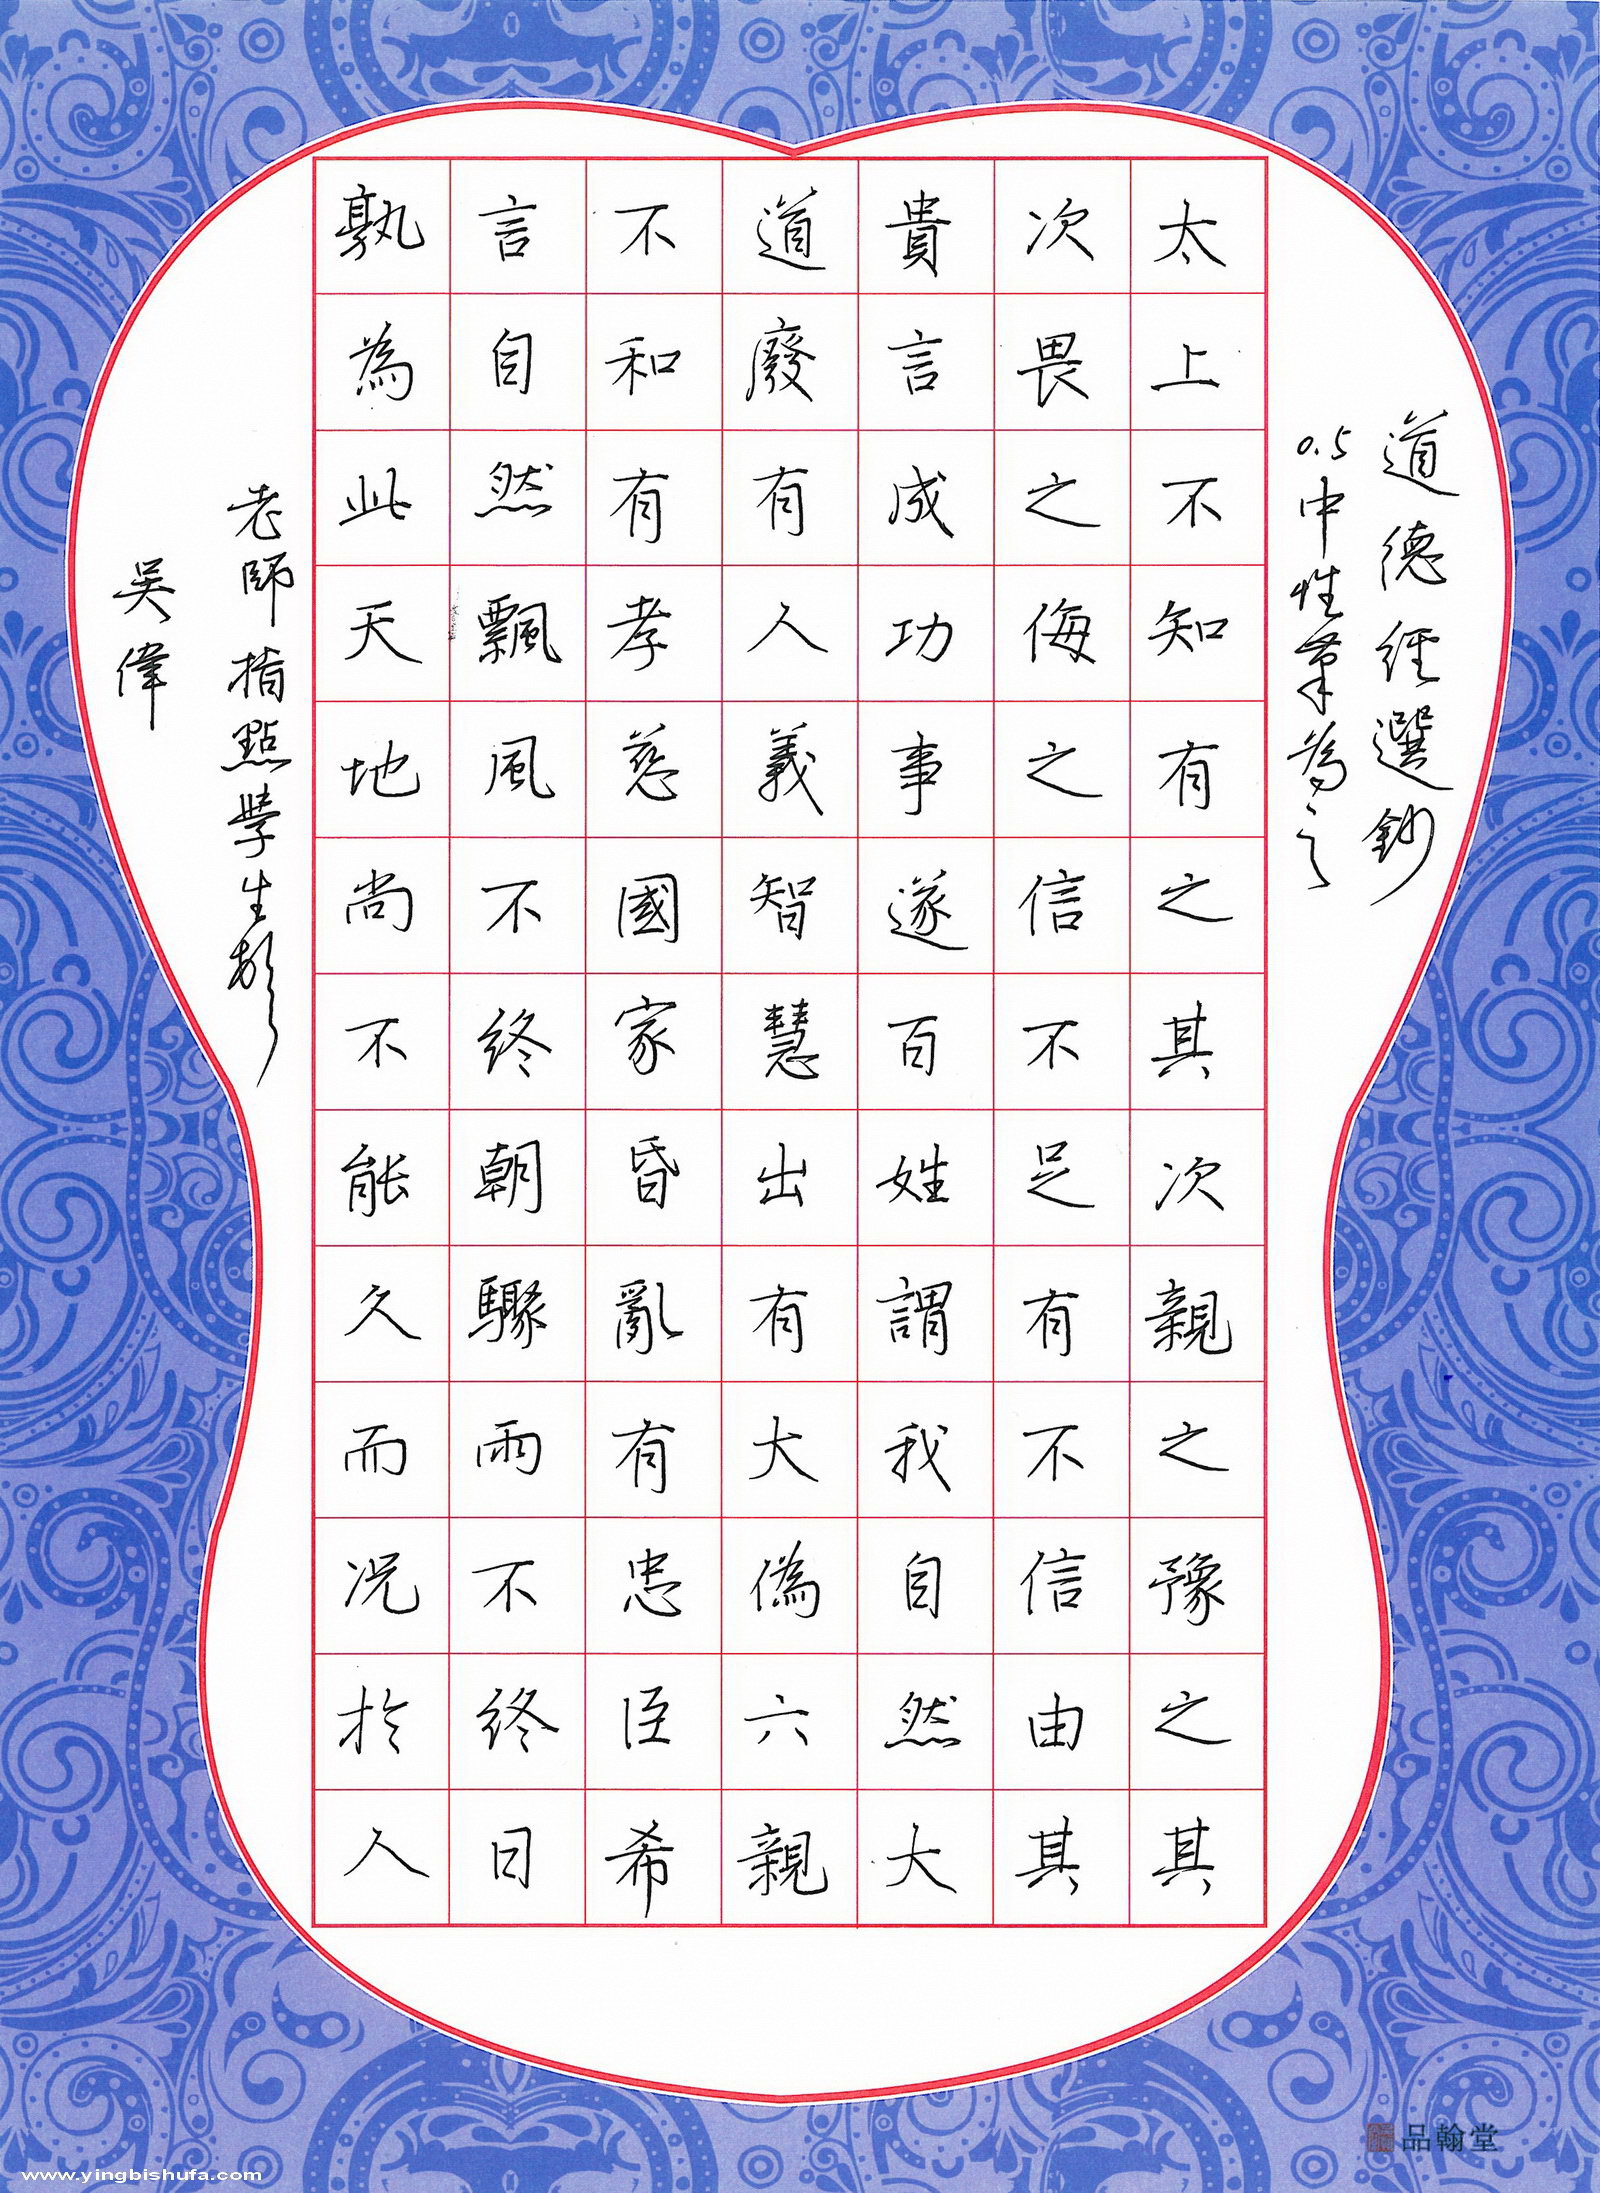 道德經選鈔
0.5中性筆為之
太上不知有之其次親之豫之其
次畏之侮之信不足有不信由其
貴言成功事遂百姓謂我自然大
道廢有人義智慧出有大偽六親
不和有孝慈國家昏亂有忠臣希
言自然飄風不終朝驟雨不終日
孰為此天地尚不能久而况於人
老師指點學生
吳偉
品翰堂
www.yingbishufa.com